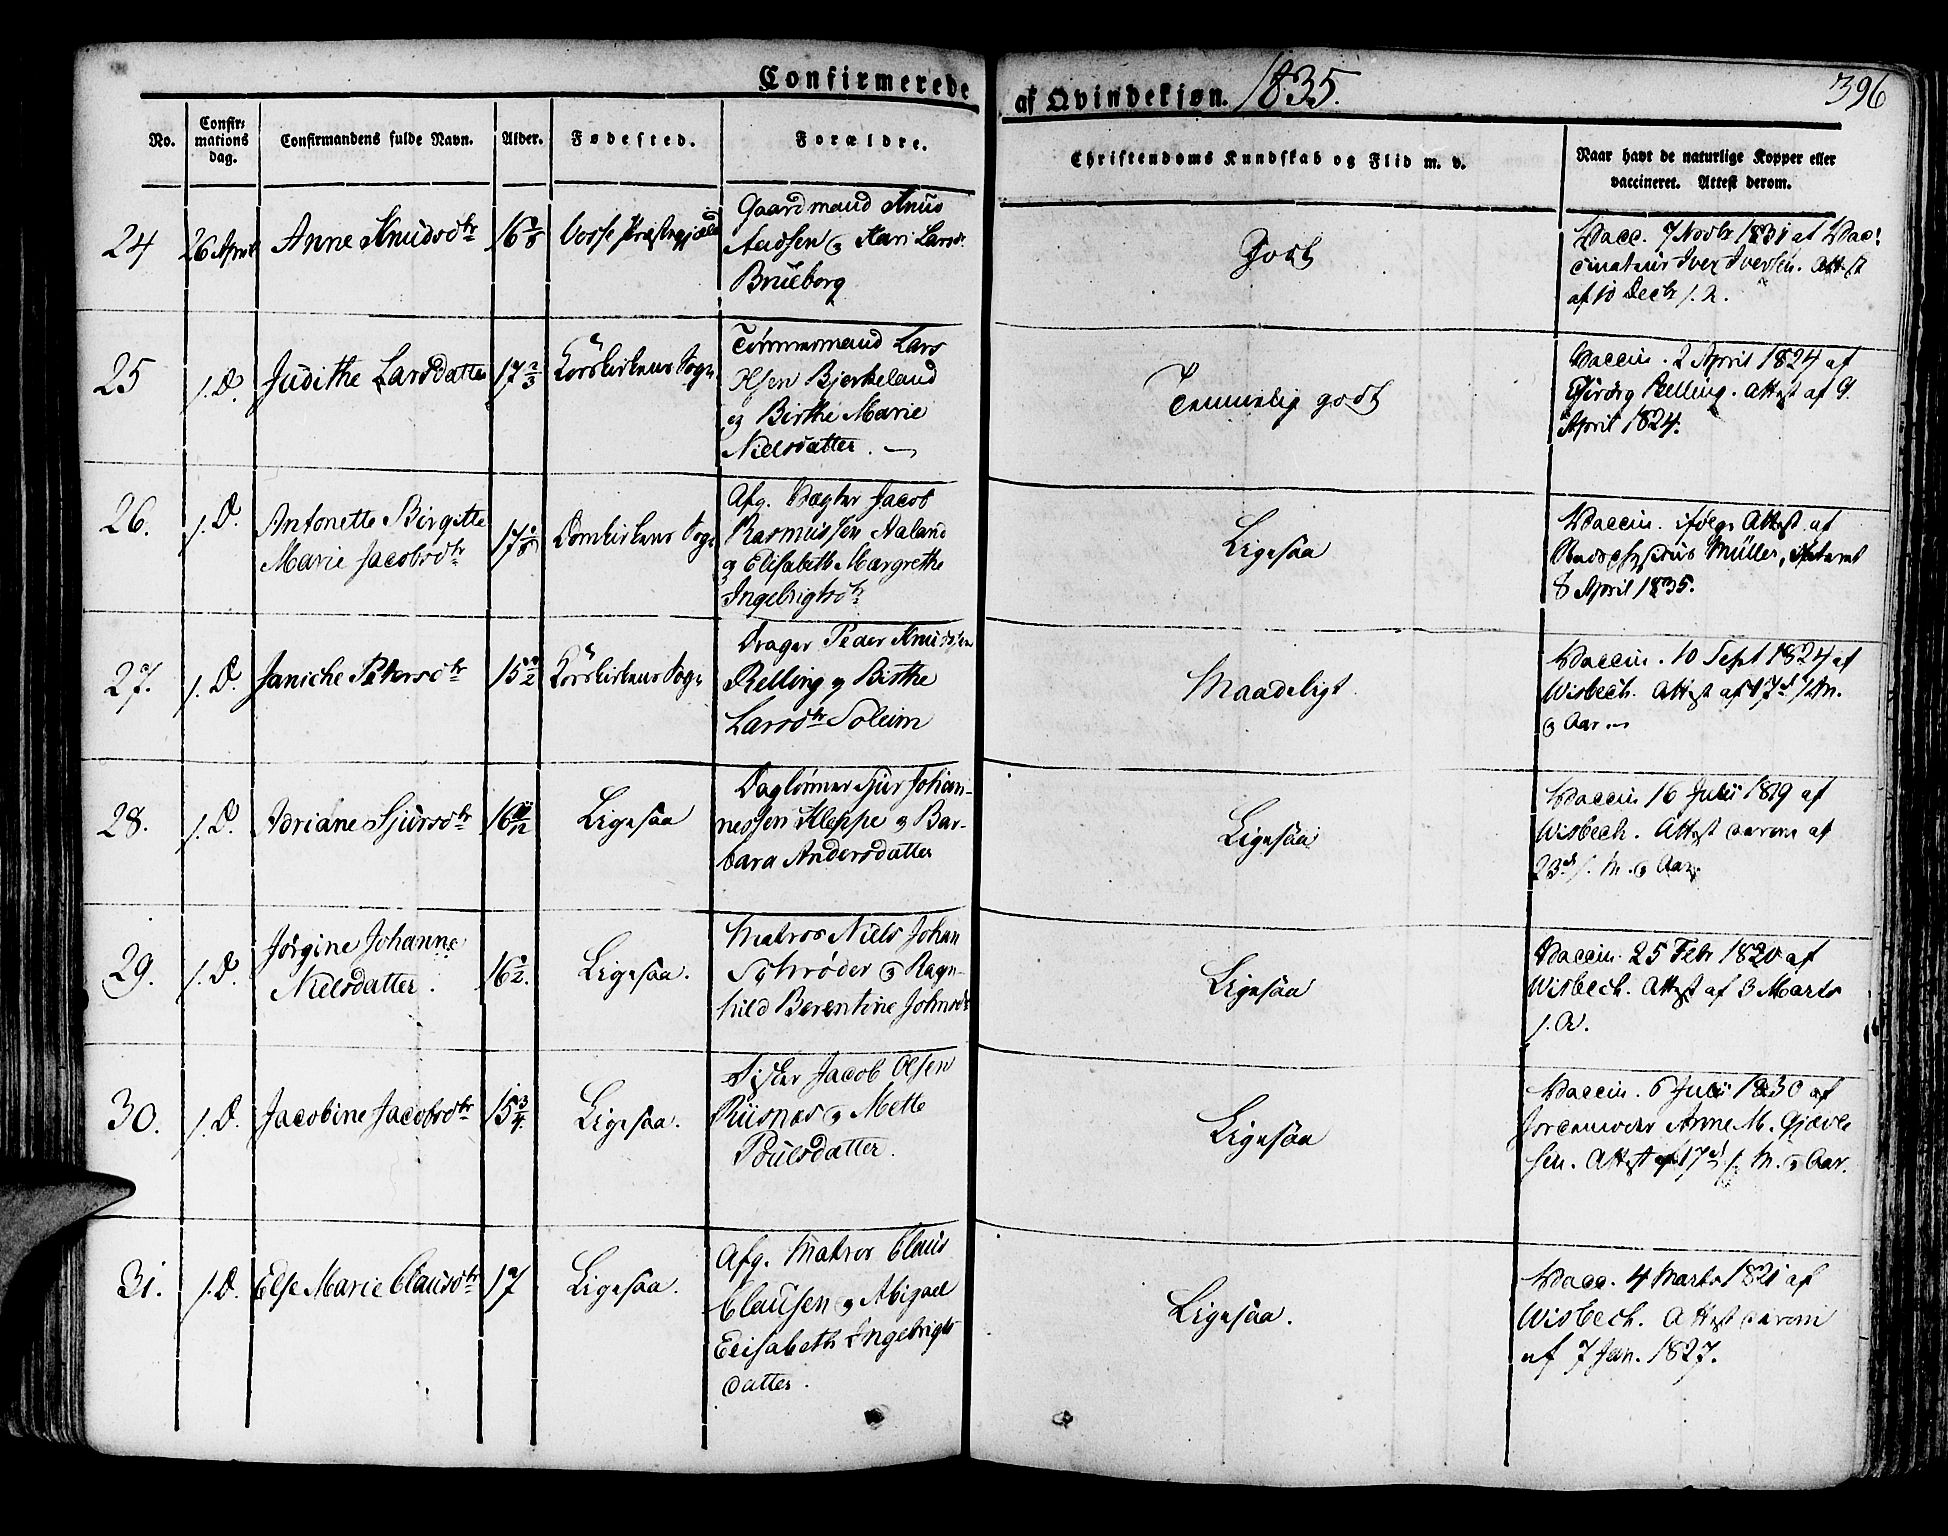 Confirmerede af Qvindekjøn. 1835.
396
No.
Confir-
mations
dag.
Confirmandens fulde Navn.
Alder.
Fødested.
Forældre.
Christendoms Kundskab og Flid m. v.
Naar havt de naturlige Kopper eller
vaccineret. Attest derom.
24
26 April
Anne Knudsdtr
16
Vosse Præstegjæld
Gaardmand Knus
Aadsen og Kari Larsd.
Brüeborg
Godt
Vacc. 7 Novbr 1831 af Vac:
cinateur Iver Iversen. Attest
af 10 Decbr s. A.
25
s. D.
Judithe Larsdatter
17 2/3
Korskirkens Sogn
Tømmermand Lars
Olsen Bjerkeland
og Birthe Marie
Nielsdatter.
Temmelig godt
Vaccin. 2 April 1824 af
Relling. Attest af 9
April 1824.
26.
s. D.
Antonette Birgitte
Marie Jacobsdtr
17
Domkirkens Sogn
Afg. Vægter Jacob
Rasmussen Aaland
og Elisabeth Margrethe
Ingebrigtsdtr
Ligesaa
Vaccin. ifølge Attest af
Müller, dateret
8 April 1835.
27.
s. D.
Janiche Petersdtr
15 1/2
Korskirkens Sogn
Drager Peder Knudsen
Relling og Birthe
Larsdtr Soleim
Maadeligt
Vaccin. 10 Sept 1824 af
Wisbech. Attest af 17d s. M.
og Aar
28.
s. D.
Adriane Sjursdtr
16 11/12
Ligesaa
Daglønner Sjur Johan-
nessen Kleppe og Bar-
bara Andersdatter
Ligesaa
Vaccin 16 Julii 1819 af
Wisbech. Attest derom af
23d s. M. og Aar.
29.
s. D.
Jørgine Johanne
Nielsdatter.
16 1/2.
Ligesaa.
Matros Niels Johan
Schrøder og Ragn-
hild Berentine Johnsdr
Ligesaa
Vaccin. 25 Febr 1820 af
Wisbech. Attest af 3 Marts
s. A.
30.
s. D.
Jacobine Jacobsdtr
15 3/4.
Ligesaa.
Fisker Jacob Olsen
Riisnæs og Mette
Poulsdatter.
Ligesaa
Vaccin. 6 Julii 1830 af
Jordemoder Anne M. Gjæve
sen. Attest af 17d s. M. og Aar.
31.
s. D.
Else Marie Clausdtr
17
Ligesaa.
Afg. Matros Claus
Clausen og Abigael
Elisabeth Ingebrigts
datter.
Ligesaa.
Vacc. 4 Marts 1821 af
Wisbech. Attest derom
af 7 Jan. 1827.